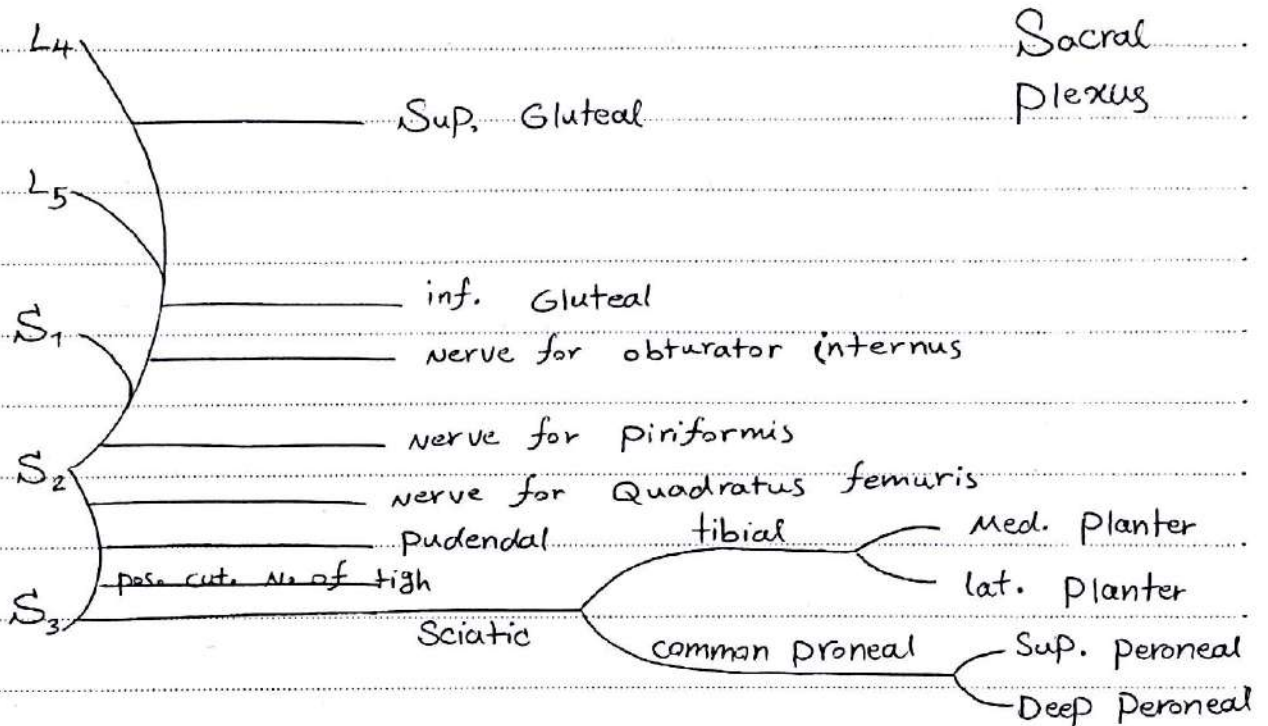 L4
Sacral
plexus
Sup. Gluteal
L5
inf. Gluteal
S1
Nerve for obturator internus
Nerve for piriformis
S2
Nerve for Quadratus femuris
pudendal
tibial
Med. Planter
pos. cut. N. of tigh
lat. Planter
S3
Sciatic
common proneal
Sup. peroneal
Deep Peroneal